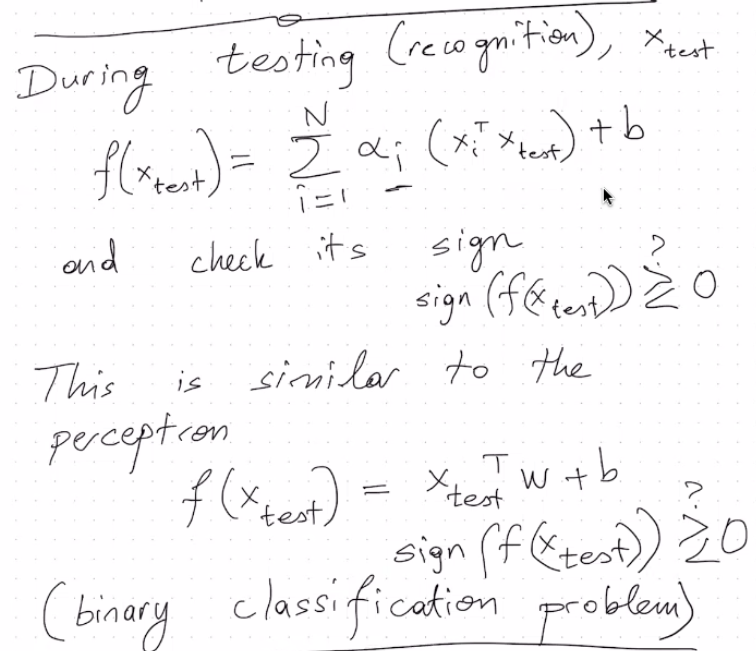 During testing (recognition), x_test
f(x_test) = \sum_{i=1}^{N} α_i (x_i^T x_test) + b
and check its sign
sign (f(x_test)) \overset{?}{≥} 0
This is similar to the
perceptron
f(x_test) = x_test^T w + b
sign (f(x_test)) \overset{?}{≥} 0
(binary classification problem)